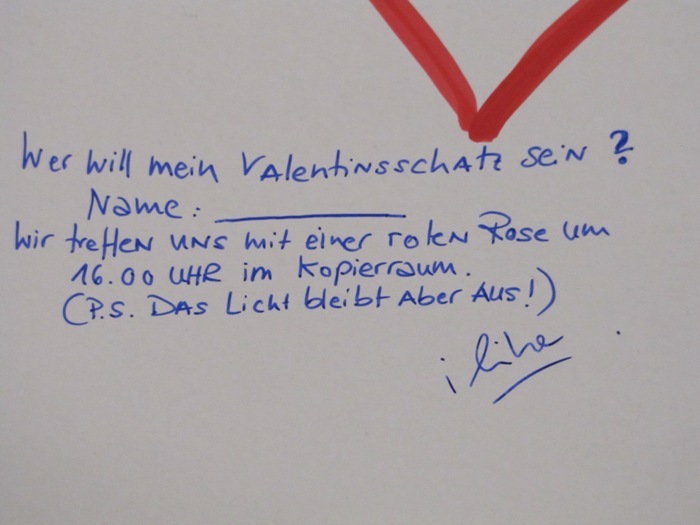 Wer will mein Valentinsschatz sein ?
Name: ___________
Wir treffen uns mit einer roten Rose um
16.00 UHR im Kopierraum.
(P.S. Das Licht bleibt aber aus!)
i like